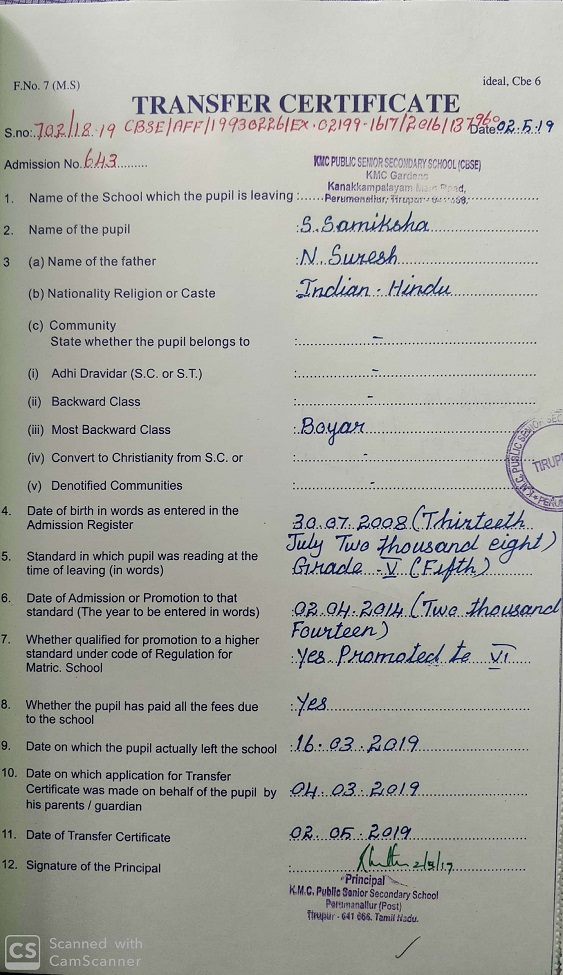 F.No. 7 (M.S)
ideal, Cbe 6
TRANSFER CERTIFICATE
S.no:.702/18.19 CBSE/AFF/19930226/EX.02199-1617/2016/137960 Date:02.5.19
Admission No.643
KMC PUBLIC SENIOR SECONDARY SCHOOL (CBSE)
KMC Gardens
Kanakkampalayam Main Road,
Perumanallur, Tirupur - 641 666.
1. Name of the School which the pupil is leaving :
2. Name of the pupil : S. Samiksha
3 (a) Name of the father : N. Suresh
(b) Nationality Religion or Caste Indian - Hindu
(c) Community
State whether the pupil belongs to : -
(i) Adhi Dravidar (S.C. or S.T.) : -
(ii) Backward Class : -
(iii) Most Backward Class : Boyar
(iv) Convert to Christianity from S.C. or : -
(v) Denotified Communities : -
K.M.C. PUBLIC SENIOR SEC
TIRUP
4. Date of birth in words as entered in the
Admission Register
30.07.2008 (Thirteeth
July Two thousand eight)
5. Standard in which pupil was reading at the
time of leaving (in words)
Grade - V (Fifth)
6. Date of Admission or Promotion to that
standard (The year to be entered in words)
: 02.04.2014 (Two thousand
Fourteen)
7. Whether qualified for promotion to a higher
standard under code of Regulation for
Matric. School
: Yes. Promoted to VI
8. Whether the pupil has paid all the fees due
to the school
: Yes
9. Date on which the pupil actually left the school : 16.03.2019
10. Date on which application for Transfer
Certificate was made on behalf of the pupil by
his parents / guardian
: 04.03.2019
11. Date of Transfer Certificate : 02.05.2019
12. Signature of the Principal :
2/5/19
Principal
K.M.C. Public Senior Secondary School
Perumanallur (Post)
Tirupur - 641 666. Tamil Nadu.
CS Scanned with
CamScanner